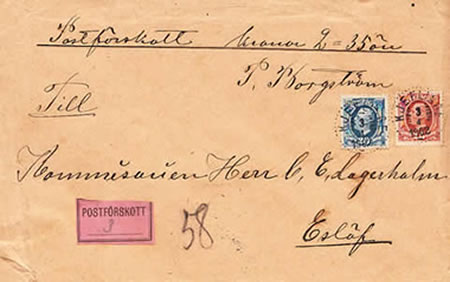 Postförskott kronor 2=35 öre
P. Borgström
Till
Kommissarien Herr C. E. Lagerholm
POSTFÖRSKOTT
3
58
Eslöf